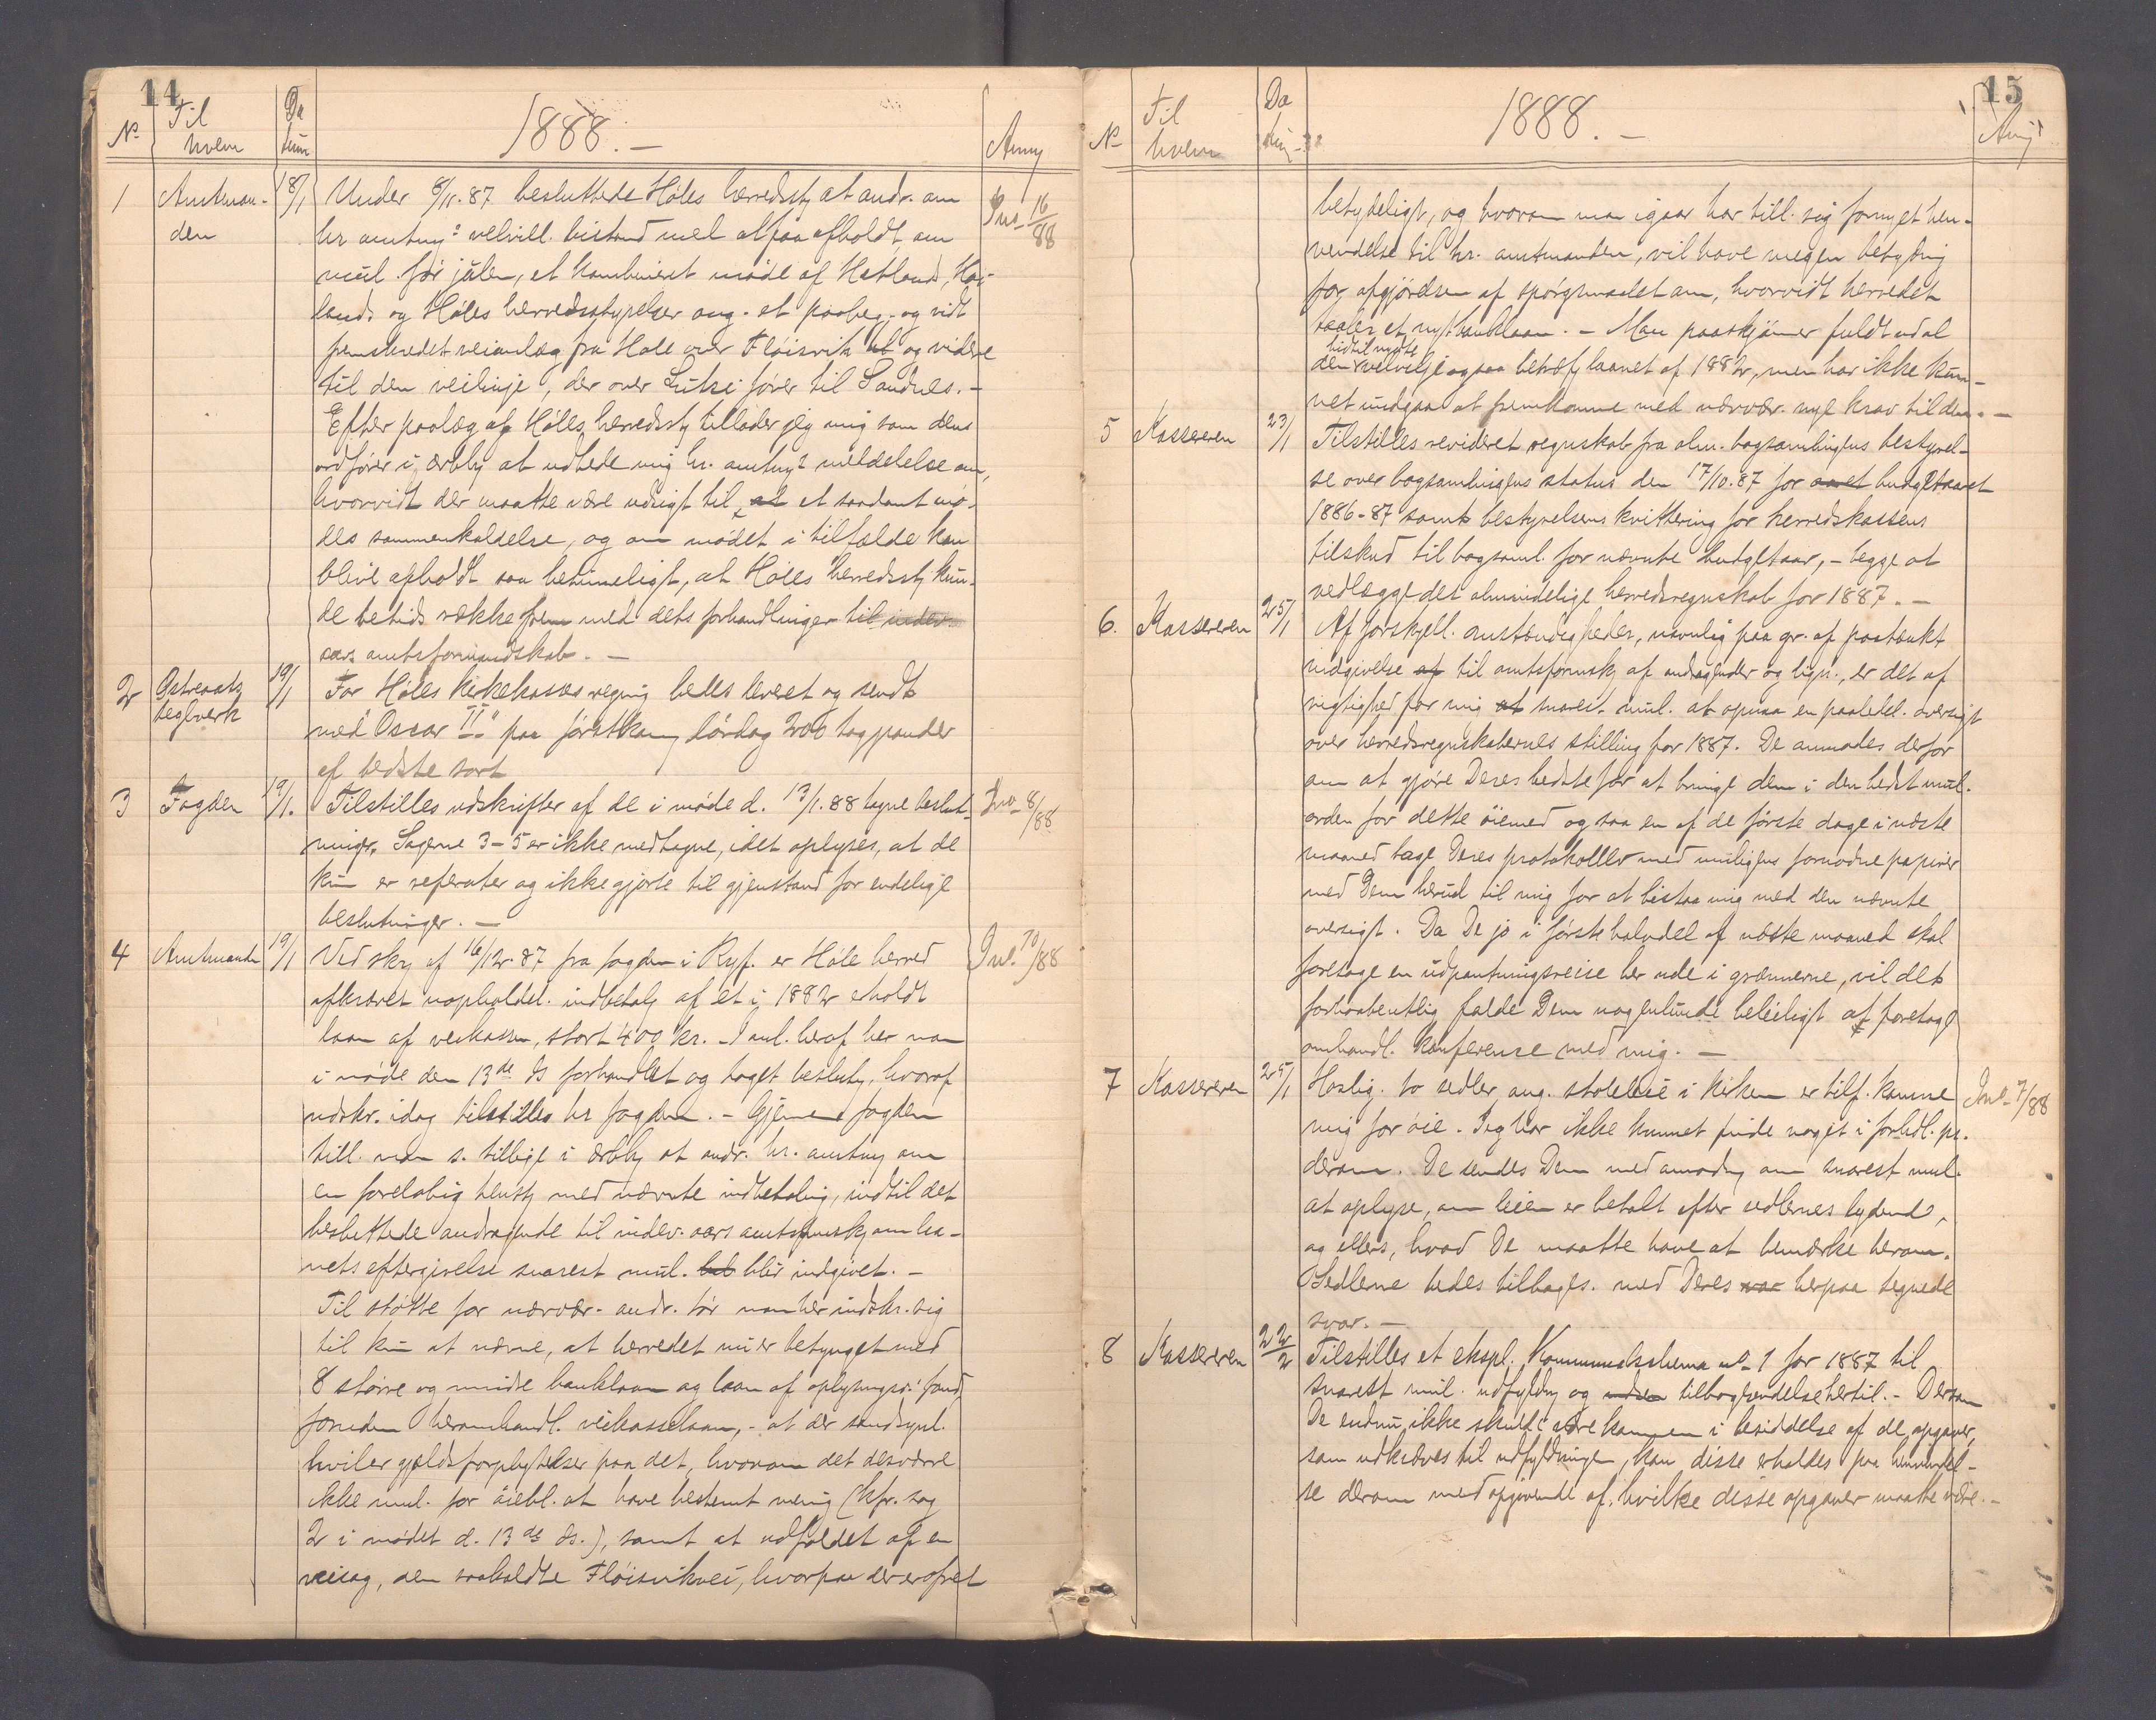 14
№
Til
hvem
Da
tum
1888. —
Anm
1
Amtman-
den
18/1
Under 8/11.87 besluttede Høles herredsst at andr. om
hr amtm velvill. bistand med at faa afholdt, om
mul. før julen, et kombineret møde af Hetlands, Høi-
lands og Høles herredsstyrelser ang. et paabeg. og vidt
fremskredet veianlæg fra Høle over Fløisvik ut og videre
til den veilinje, der over Lutsi fører til Sandnes. —
Efter paalæg af Høles herredsst tillader jeg mig som dens
ordfører i ærbø at udbede mig hr. amtm meddelelse om,
hvorvidt der maatte være udsigt til at et saadant mø-
des sammenkaldelse, og om mødet i tilfælde kan
blive afholdt saa betimeligt, at Høles herredsst kun-
de betids række frem med dets forhandlinger til indev.
aars amtsformandskab. —
Ino 16/88
2
teglverk
19/1
For Høles kirkekasses regning bedes leveret og sendt
med "Oscar II" paa førstkom lørdag 200 tagpander
af bedste sort
3
Fogden
19/1.
Tilstilles udskrifter af de i møde d. 13/1.88 tagne beslut-
ninger. Sagerne 3-5 er ikke medtagne, idet oplyses, at de
kun er referater og ikke gjorte til gjenstand for endelige
beslutninger. —
Ino 8/88
4
Amtmanden
19/1
Ved skr af 16/12.87 fra fogden i Ryf. er Høle herred
afkrævet uopholdel. indbetalg af et i 1882 erholdt
laan af veikassen, stort 400 kr. — I anl. heraf har man
i møde den 13de ds forhandlet og taget beslutng, hvoraf
udskr. idag tilstilles hr fogden. — Gjennem fogden
till. man s. tillige i ærbø at andr. hr. amtm om
en foreløbig henst med nævnte indbetaling, indtil det
besluttede andragende til indev. aars amtsformsk om laa-
nets eftergivelse snarest mul. bli blir indgivet. —
Til støtte for nærvær. andr. tør man her indskr. sig
til kun at nævne, at herredet nu er betynget med
8 større og mindre banklaan og laan af oplysngsv. fond,
foruden heromhandl. veikasselaan, — at der sandsynl.
hviler gjældsforpligtelser paa det, hvorom det desværre
ikke mul. for øiebl. at have bestemt mening (kfr. sag
2 i mødet d. 13de ds.), samt at udfaldet af en
veisag, den saakaldte Fløisvikvei, hvorpaa der er ofret
Ino. 10/88
15
№
Til
hvem
Da
tum
1888. —
Anm
betydeligt, og hvorom man igaar har till. sig fornyet hen-
vendelse til hr. amtmanden, vil have megen betydning
for afgjørelsen af spørgsmaalet om, hvorvidt herredet
taaler et nyt banklaan. — Man paaskjønner fuldt ud al
hidtil nydte
den velvilje ogsaa betræff laanet af 1882, men har ikke kun-
net undgaa at fremkomme med nærvær. nye krav til den. —
5
Kassereren
23/1
Tilstilles revideret regnskab fra alm. bogsamlingens bestyrel-
se over bogsamlingens status den 17/10.87 for aaret budgetaaret
1886-87 samt bestyrelsens kvittering for herredskassens
tilskud til bogsaml. for nævnte budgetaar, — begge at
vedlægge det almindelige herredsregnskab for 1887. —
6.
Kassereren
25/1
Af forskjell. omstændigheder, navnlig paa gr. af paatænkt
indgivelse af til amtsformsk af andragender og lign., er det af
vigtighed for mig at snarest mul. at opnaa en paalidel. oversigt
over herredsregnskabernes stilling for 1887. De anmodes derfor
om at gjøre Deres bedste for at bringe dem i den bedst mul.
orden for dette øiemed og saa en af de første dage i næste
maaned tage Deres protokoller med muligens fornødne papirer
med Dem herud til mig for at bistaa mig med den nævnte
oversigt. Da De jo i første halvdel af næste maaned skal
foretage en udpantningsreise her ude i grænnerne, vil det
forhaabentlig falde Dem nogenlunde beleiligt at foretage
omhandl. konferense med mig. —
7
Kassereren
25/1
Hoslig. to sedler ang. stoleleie i kirken er tilf. komne
mig for øie. Jeg har ikke kunnet finde noget i forhdl. pr.
derom. De sendes Dem med anmodng om snarest mul.
at oplyse, om leien er betalt efter sedlernes lydende,
og ellers, hvad De maatte have at bemærke herom.
Sedlerne bedes tilbages. med Deres svar herpaa tegnede
svar. —
Ino 7/88
8
Kassereren
22/2
Tilstilles et ekspl. Kommunalskema no 1 for 1887 til
snarest mul. udfyldng og tilbagsendelse hertil. — Dersom
De endnu ikke skulde være kommen i besiddelse af de opgaver,
som udkræves til udfyldningen, kan disse erholdes paa henvendel-
se derom med opgivende af, hvilke disse opgaver maatte være. —